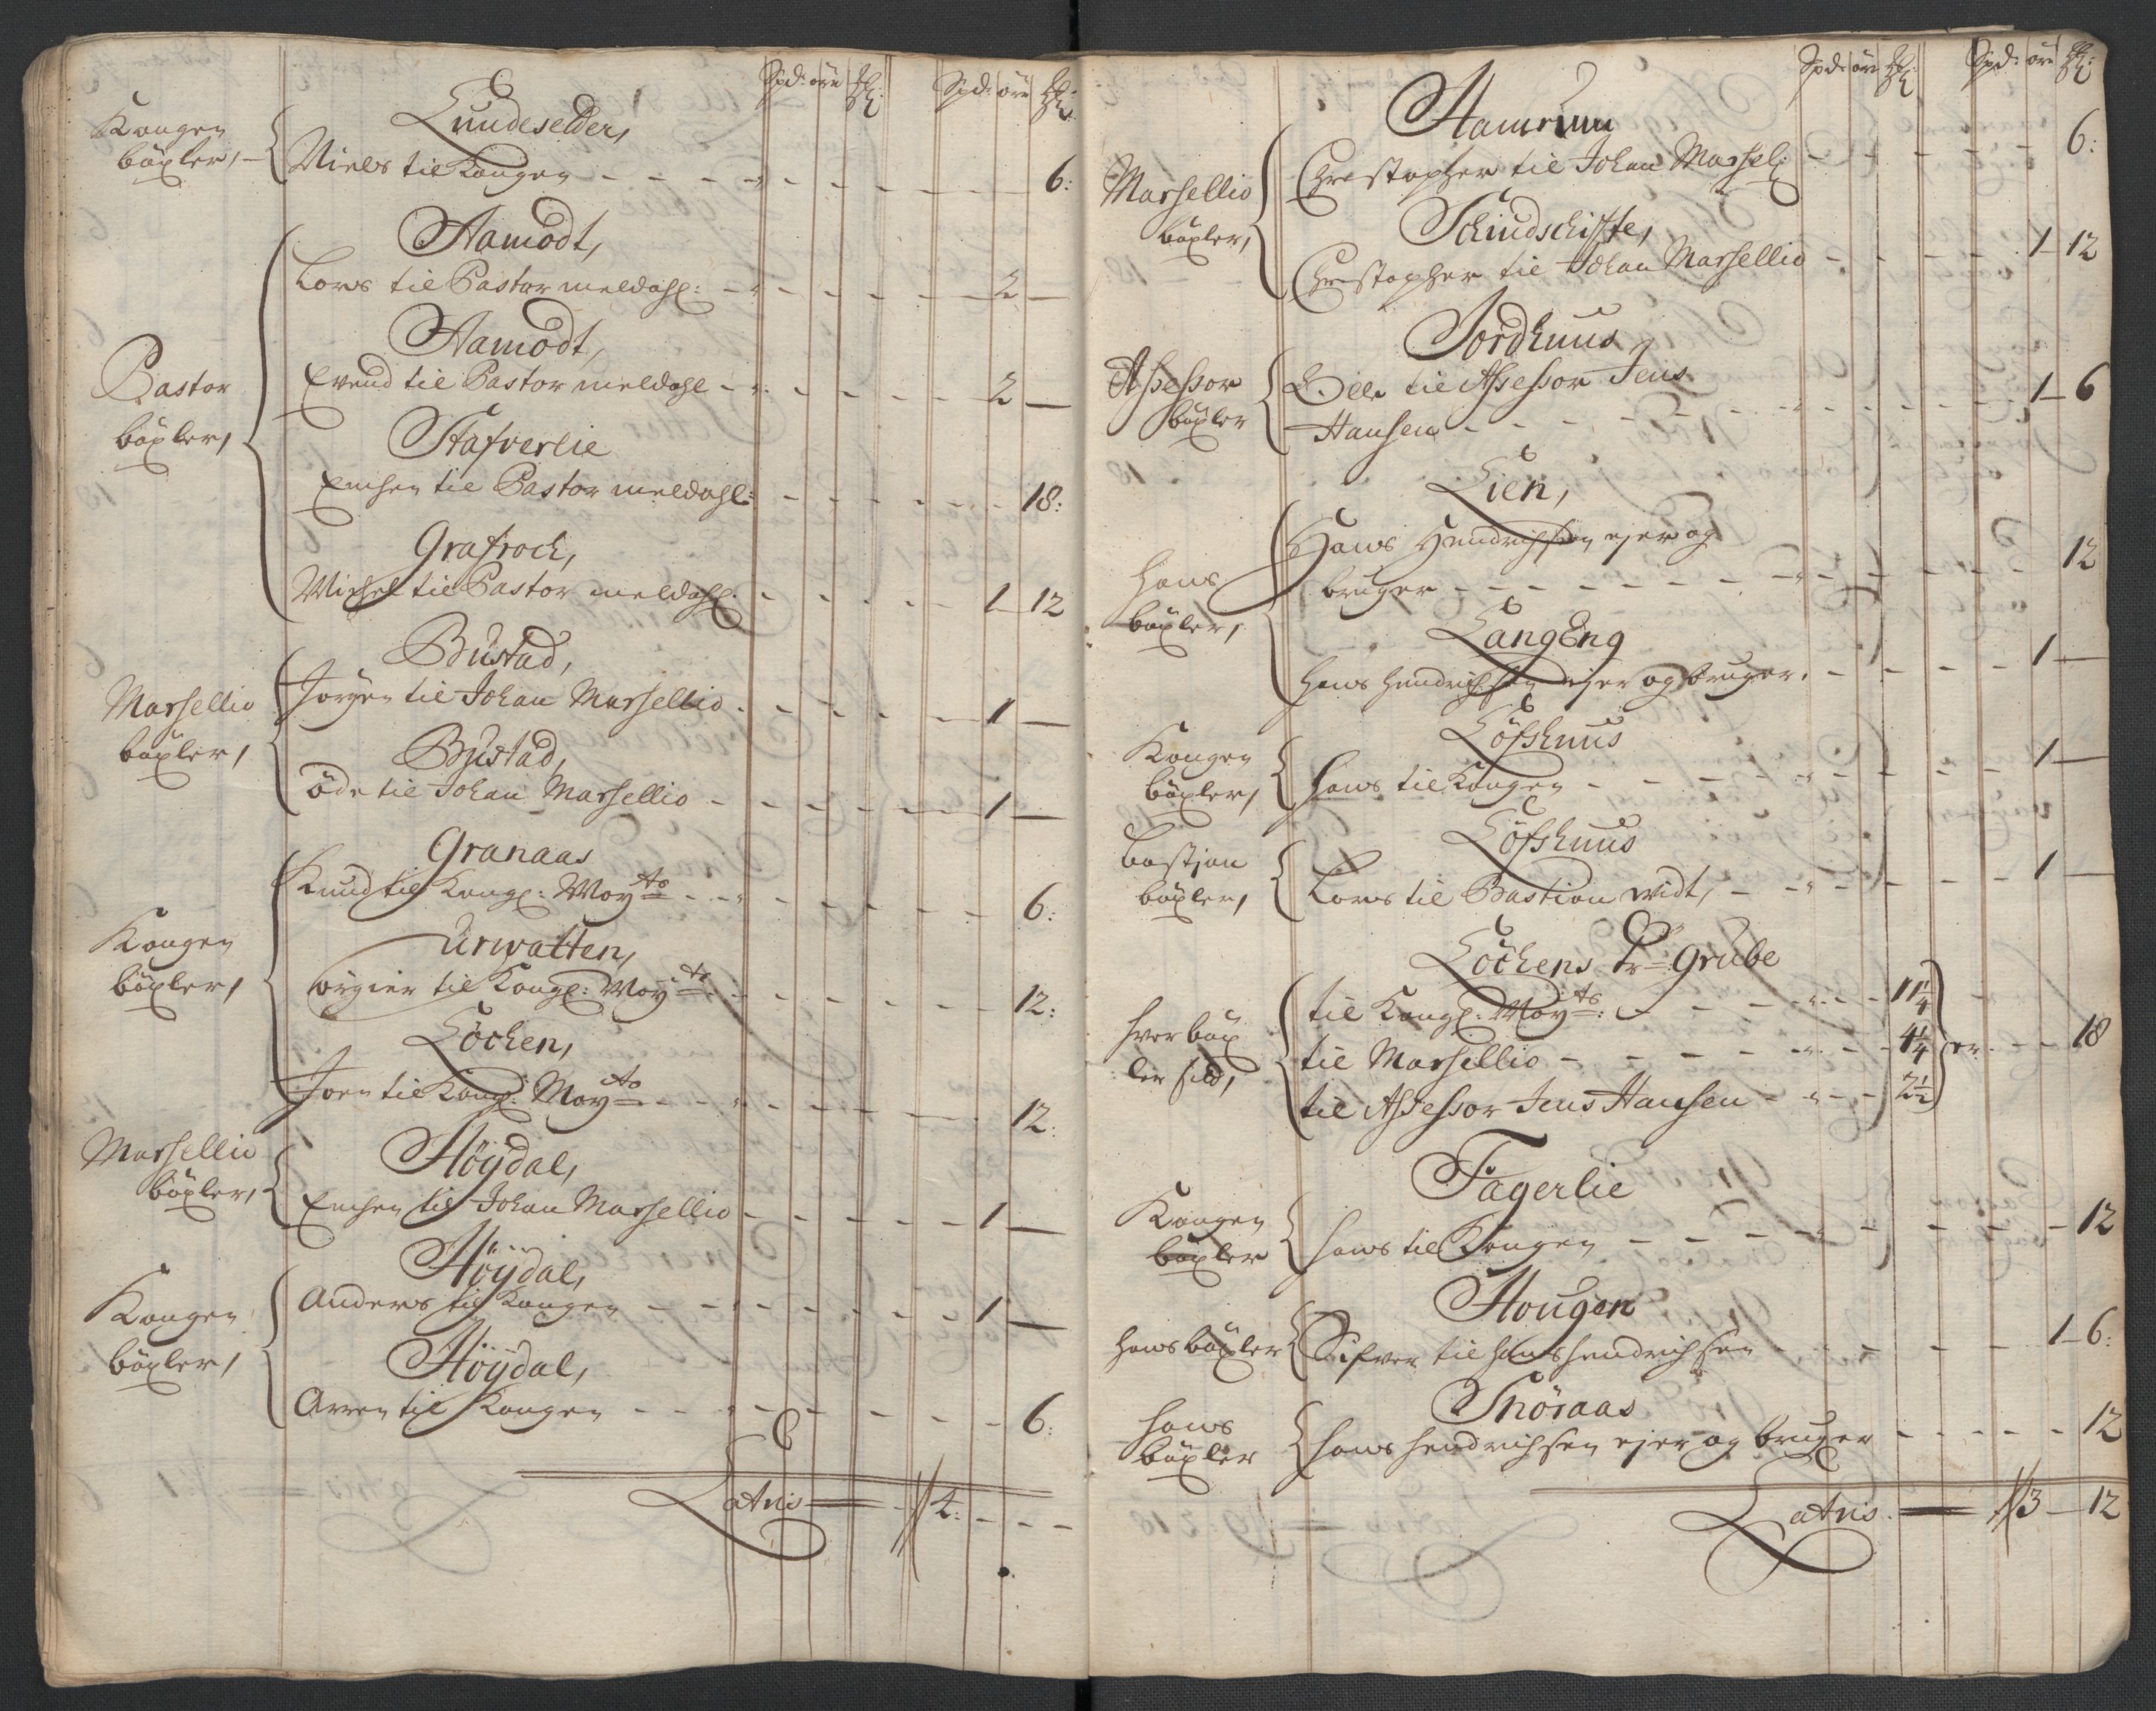 Spd: öre
Spd: öre
Kongen
böxler,
Lundeseider,
Niels til Kongen 6:
Pastor
böxler,
Aamodt,
Lars til Pastor meldahl: 2
Aamodt,
Evend til Pastor meldahl 2
Stafverlie
til Pastor meldahl: 18:
Grafrock,
Michel til Pastor meldahl: 1 12
Marsellio
böxler,
Bustad,
Jörgen til Johan Marsellio 1
Bustad,
öde til Johan Marsellio 1
Kongen
böxler,
Granaas
Knud til Kongl: Mayts 6:
Urwatten,
til Kongl: Mayts 12:
Löcken,
Joen til Kongl: Mayts 12:
Marsellio
böxler,
Höydal,
til Johan Marsellio 1
Kongen
böxler,
Höydal,
Anders til Kongen 1
Höydal,
Arren til Kongen 6:
Latris 12:
Spd: öre
Spd: öre
Marsellio
böxler,
Hamrum
Christopher til Johan Marsel: 6:
Schiudschifte,
Christopher til Johan Marsellio 1 12
Assessor
böxler
Jordhuus
Olle til Assessor Jens
Hansen 1 6
Hans
böxler,
Lien,
Hans Hendrichsen ejer og
bruger 12
LangEng
Hans Hendrichsen ejer og bruger. 1
Kongen
böxler,
Löfshuus
Hans til Kongen 1
Bastian
böxler,
Löfshuus
Lars til Bastian widt, 1
hver böx
ler sild,
Löckens Gr Grube
til Kongl: Mayts: 11 1/4
til Marsellio 4 1/4 er 18
til Assessor Jens Hansen 2 1/2
Kongen
böxler
Fagerlie
Hans til Kongen 12
Hans böxler
Hougen
Sifver til Hans Hendrichsen 1 6:
Hans
böxler
Snöraas
Hans Hendrichsen ejer og bruger 12
Latris 13 12